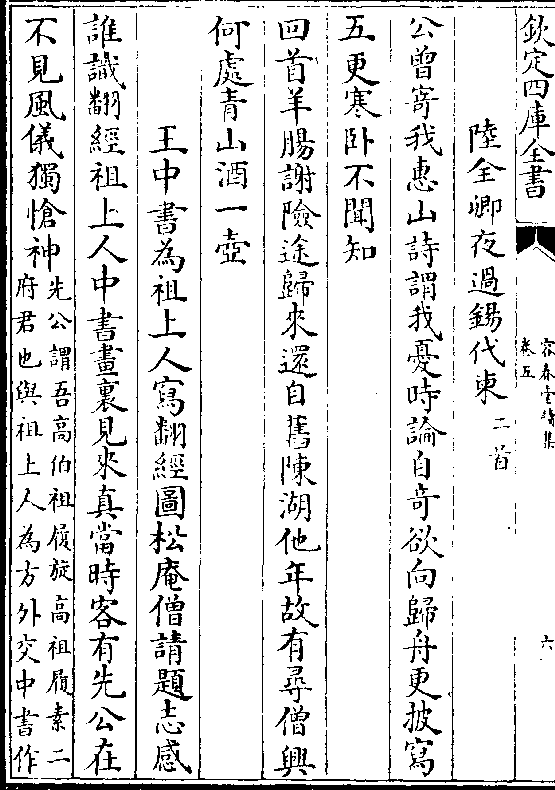 欽定四庫全書
容春堂續集
卷五
六
陸全卿夜過錫代柬二首
公曾寄我惠山詩謂我憂時論自奇欲向歸舟更披寫
五更寒卧不聞知
回首羊腸謝險途歸來還自舊陳湖他年故有尋僧興
何處青山酒一壺
王中書為祖上人寫翻經圖松庵僧請題志感
誰識翻經祖上人中書畫裏見來真當時客有先公在
不見風儀獨愴神先公謂吾高伯祖履旋高祖履素二
府君也與祖上人為方外交中書作